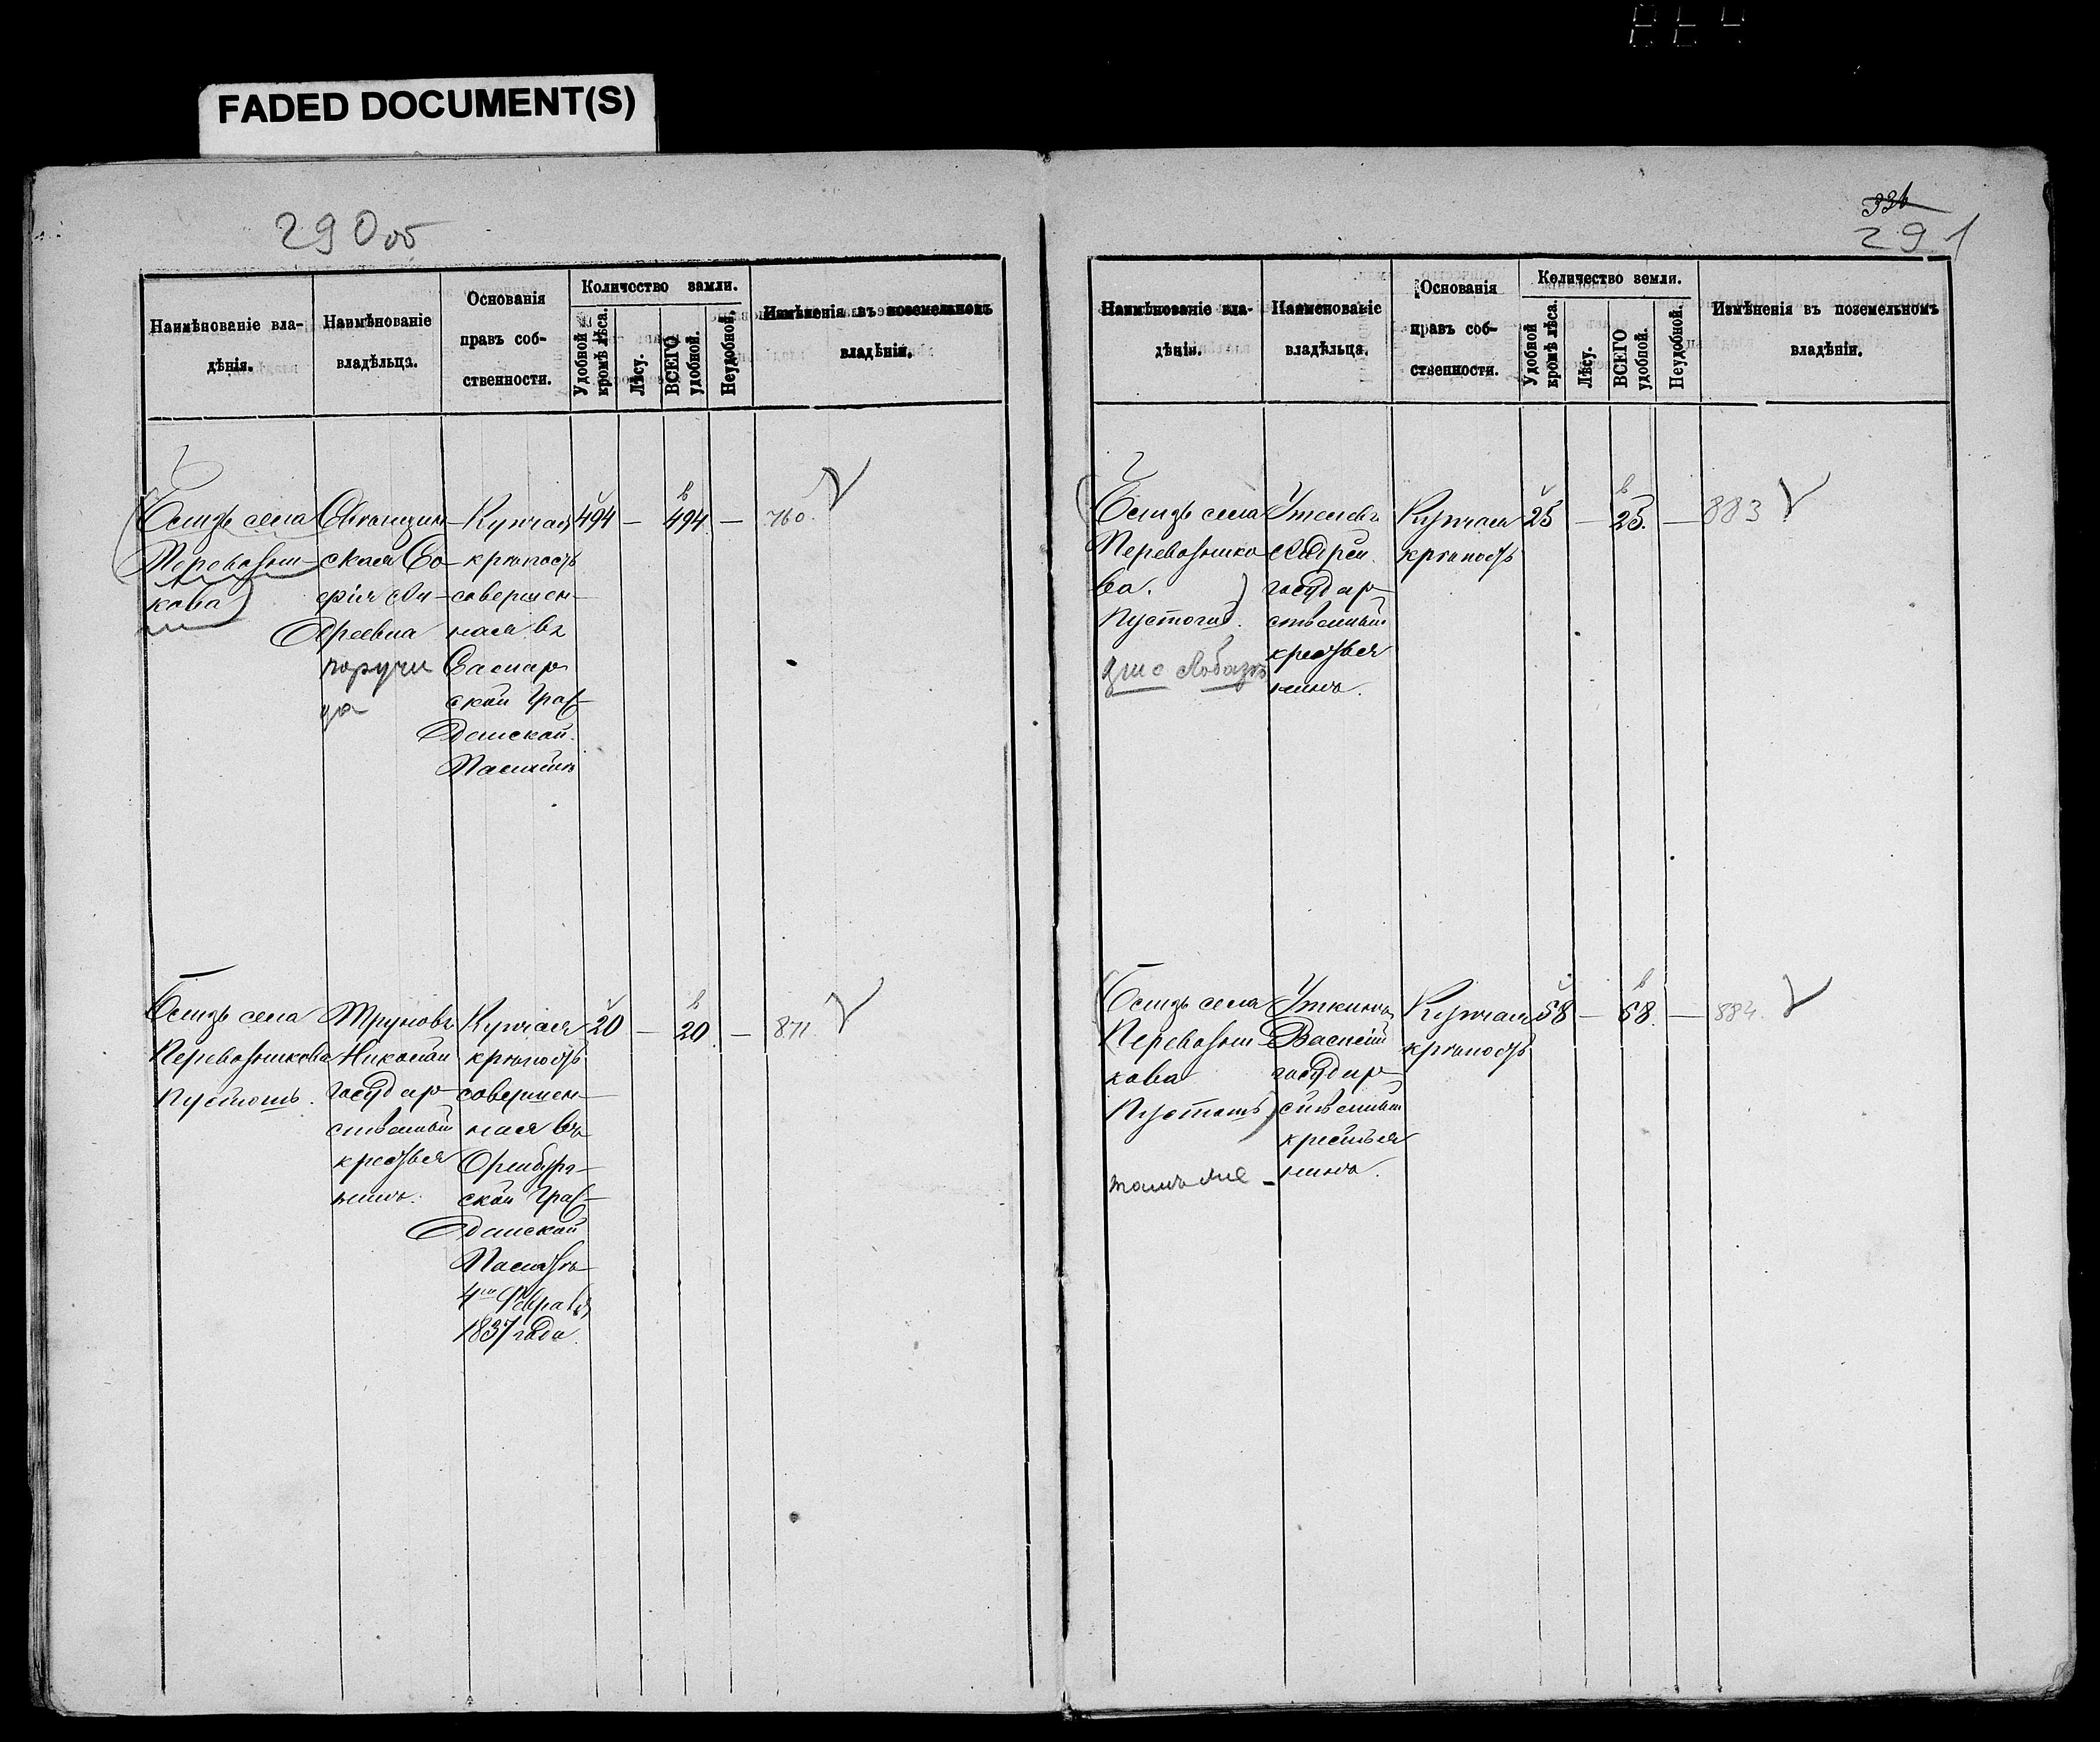 FADED DOCUMENT(S)
290об
Наимѣнованіе вла-
дѣнія.
Наимѣнованіе
владѣльца.
Основанія
правъ соб-
ственности.
Количество земли.
Удобной
кромѣ лѣса.
Лѣсу.
ВСЕГО
удобной.
Неудобной.
Измѣненія въ поземельномъ
владѣніи.
Близь села
Перевозни-
кова
ская Со-
фія Ан-
дреевна
поручи
ца
Купчая
крѣпость
совершен-
ная въ
Самар-
ской Граж-
данской
Палатѣ
494 — 494 — 760.
Близь села
Перевозникова
Пустошь.
Труновъ
Николай
государ-
ственный
крестья
нинъ.
Купчая
крѣпость
совершен-
ная въ
Оренбург-
ской Граж-
данской
Палатѣ
4го Февраля
1837 года.
20 — 20 — 871.
336
291
Наимѣнованіе вла-
дѣнія.
Наименованіе
владѣльца.
Основанія
правъ соб-
ственности.
Количество земли.
Удобной
кромѣ лѣса.
Лѣсу.
ВСЕГО
удобной.
Неудобной.
Измѣненія въ поземельномъ
владѣніи.
Близь села
Перевознико
ва.
Пустошь.
Андрей
государ-
ственный
крестья
нинъ.
Купчая
крѣпость
25 — 25. — 883
Близь села
Перевозни
кова
Пустошь
тамъ же -
Уткинъ
Василій
государ-
ственный
крестья
нинъ.
Купчая
крѣпость
58 — 58. — 884.